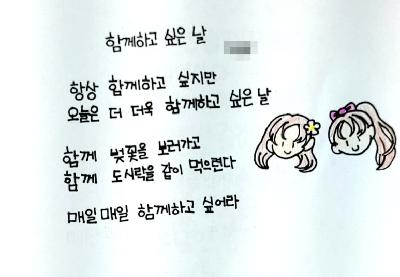 함께하고 싶은 날
항상 함께하고 싶지만
오늘은 더 더욱 함께하고 싶은 날
함께 벚꽃을 보러가고
함께 도시락을 같이 먹으련다
매일매일 함께하고 싶어라